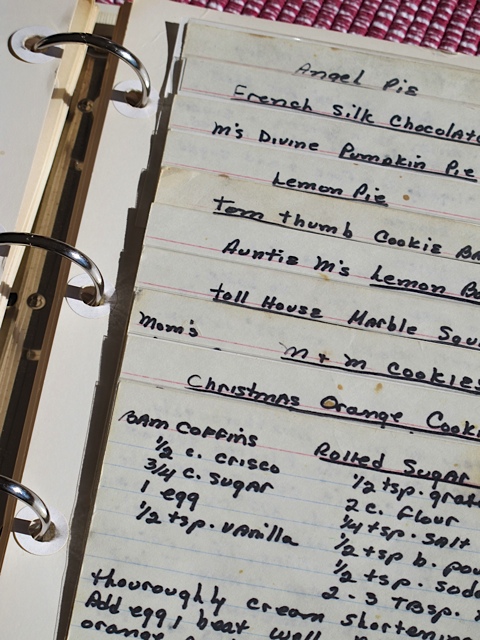 Angel Pie
French Silk Chocolate
M's Divine Pumpkin Pie
Lemon Pie
Tom Thumb Cookie Ba
Auntie M's Lemon Ba
Toll House Marble Squ
Mom's
M & M Cookies
Christmas Orange Cooki
Pam Coffins
Rolled Sugar
1/2 c. crisco
3/4 c. sugar
1 egg
1/2 tsp. vanilla
1/2 tsp. grate
2 c. flour
1/4 tsp. salt
1/2 tsp b. pow
1/2 tsp. soda
2-3 TBSP.
thouroughly cream shortening
Add egg, beat well
orange